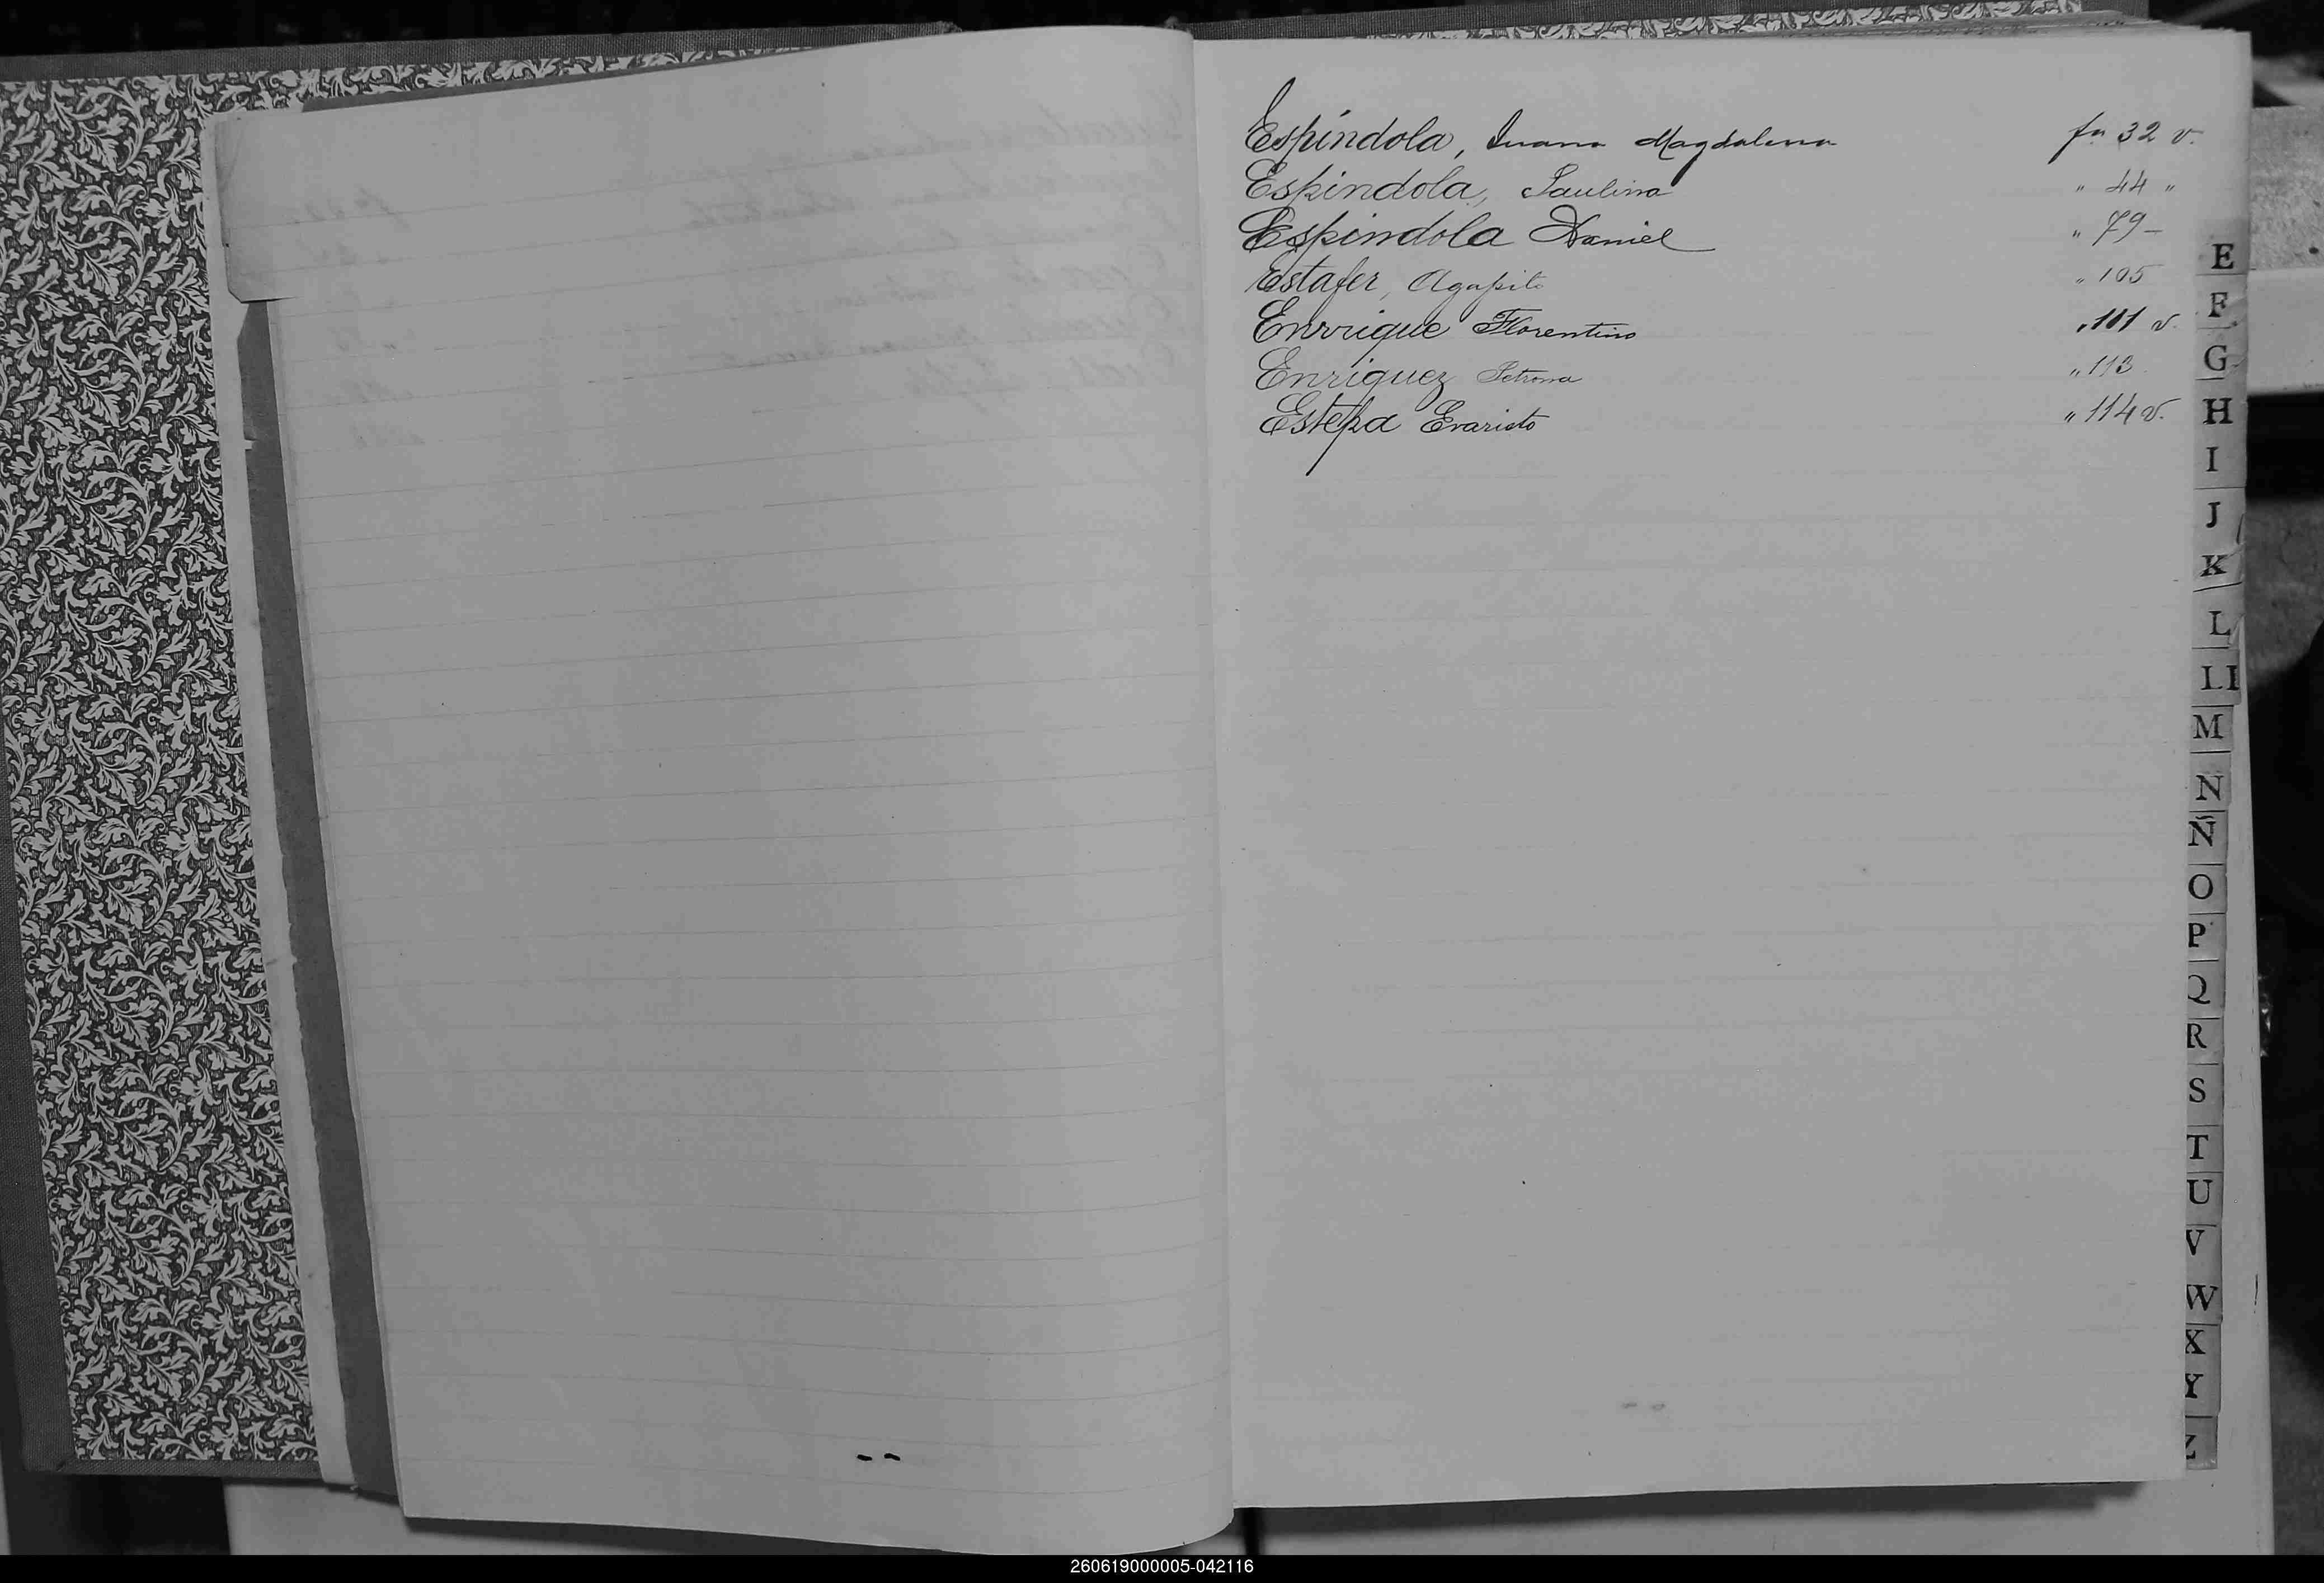 Espíndola, Juana Magdalena fs. 32 v.
Espindola, Paulina " 44 "
Espindola Daniel " 79 –
Estafer, Agapito " 105
Enrrique Florentino " 101 v.
Enriquez Petrona " 113
Estepa Evaristo " 114 v.
E
F
G
H
I
J
K
L
LL
M
N
Ñ
O
P
Q
R
S
T
U
V
W
X
Y
Z
260619000005-042116